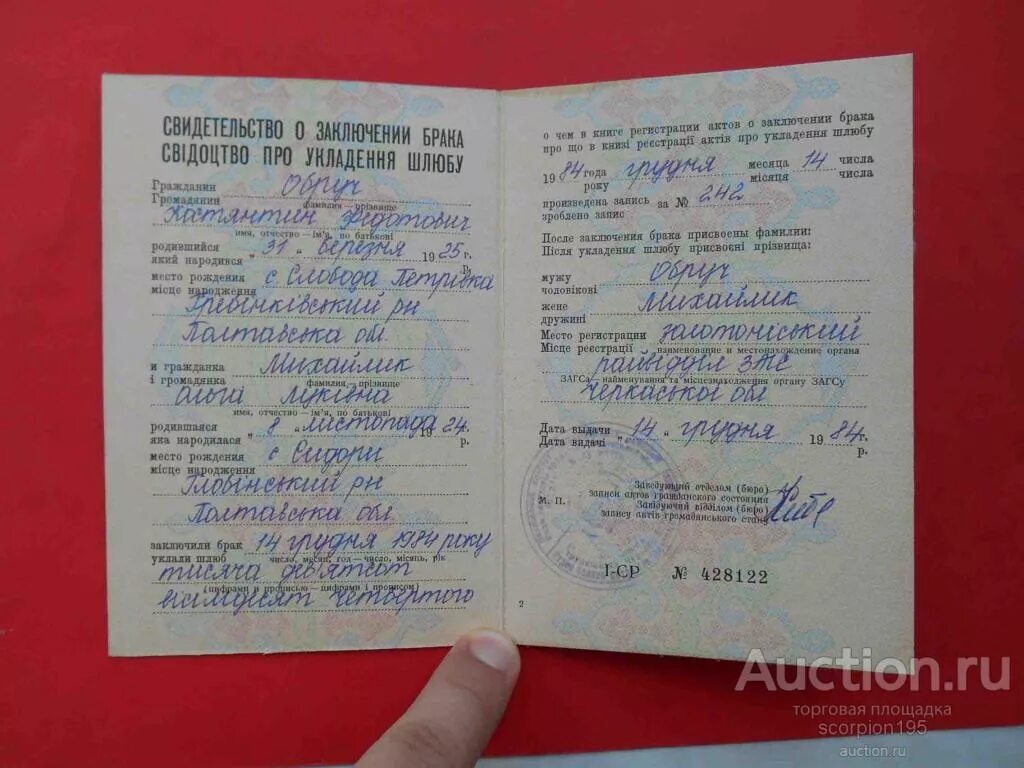 СВИДЕТЕЛЬСТВО О ЗАКЛЮЧЕНИИ БРАКА
СВІДОЦТВО ПРО УКЛАДЕННЯ ШЛЮБУ
Гражданин Обруч
Громадянин
фамилия – прізвище
Костянтин Федотович
имя, отчество – ім'я, по батькові
родившийся 31 " березня 1925 г.
який народився " р.
место рождения с Слобода Петрівка
місце народження
Гребінківський рн
Полтавська обл
и гражданка Михайлик
і громадянка
фамилия – прізвище
Ольга Луківна
имя, отчество – ім'я, по батькові
родившаяся 8 " листопада 1924 г.
яка народилася " р.
место рождения с Сидори
місце народження
Глобинський рн
Полтавська обл
заключили брак 14 грудня 1984 року
уклали шлюб число, месяц, год – число, місяць, рік
тисяча дев'ятсот
(цифрами и прописью – цифрами і прописом)
вісімдесят четвертого
о чем в книге регистрации актов о заключении брака
про що в книзі реєстрації актів про укладення шлюбу
1984 года грудня месяца 14 числа
року місяця числа
произведена запись за № 242
зроблено запис
После заключения брака присвоены фамилии:
Після укладення шлюбу присвоєні прізвища:
мужу Обруч
чоловікові
жене Михайлик
дружині
Место регистрации Золотоніський
Місце реєстрації наименование и местонахождение органа
райвідділ ЗАГС
ЗАГСа – найменування та місцезнаходження органу ЗАГСу
Черкаської обл
Дата выдачи 14 " грудня 1984 г.
Дата видачі " р.
М. П.
Заведующий отделом (бюро)
записи актов гражданского состояния
Завідуючий відділом (бюро)
запису актів громадянського стану
I-СР № 428122
2
Auction.ru
торговая площадка
scorpion195
auction.ru